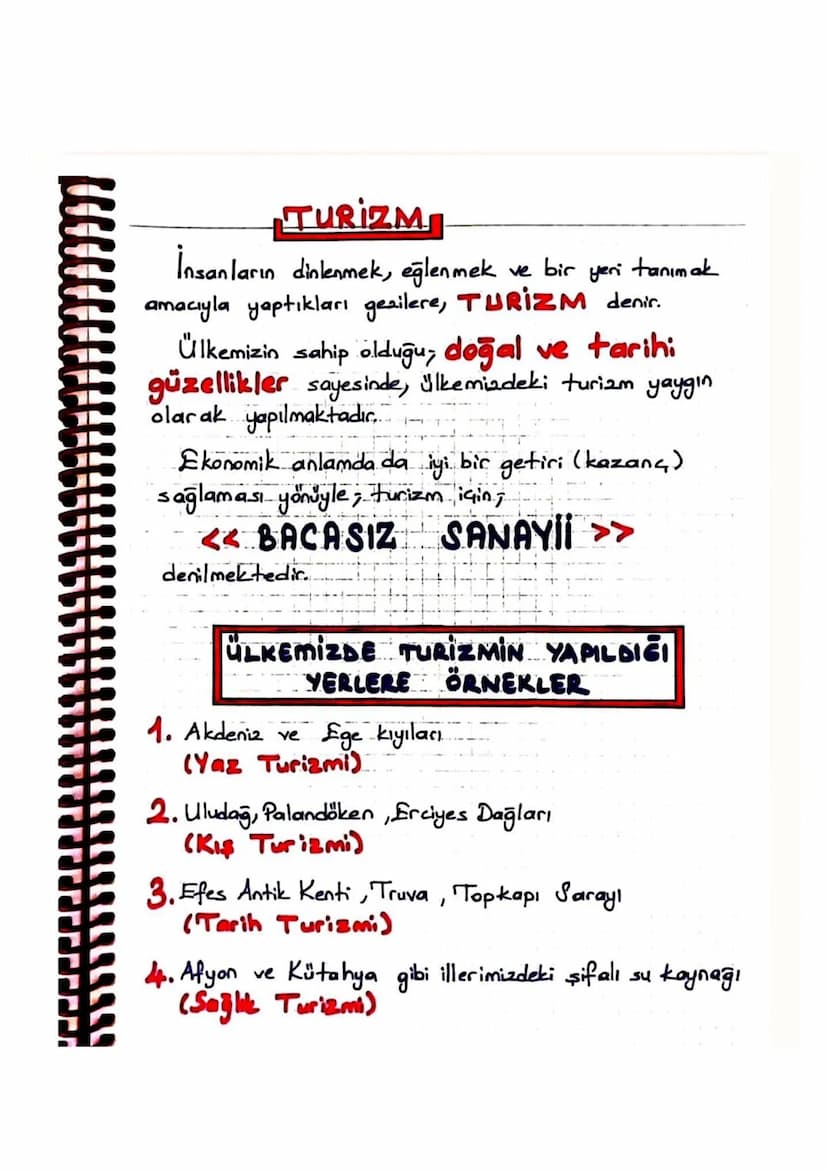 TURİZM
İnsanların dinlenmek, eğlenmek ve bir yeri tanımak
amacıyla yaptıkları gezilere, TURİZM denir.
Ülkemizin sahip olduğu; doğal ve tarihi
güzellikler sayesinde, ülkemizdeki turizm yaygın
olarak yapılmaktadır.
Ekonomik anlamda da iyi bir getiri (kazanç)
sağlaması yönüyle; turizm için;
<< BACASIZ SANAYİİ >>
denilmektedir.
ÜLKEMİZDE TURİZMİN YAPILDIĞI
YERLERE ÖRNEKLER
1. Akdeniz ve Ege kıyıları
(Yaz Turizmi)
2. Uludağ, Palandöken, Erciyes Dağları
(Kış Turizmi)
3. Efes Antik Kenti, Truva, Topkapı Sarayı
(Tarih Turizmi)
4. Afyon ve Kütahya gibi illerimizdeki şifalı su kaynağı
(Sağlık Turizmi)